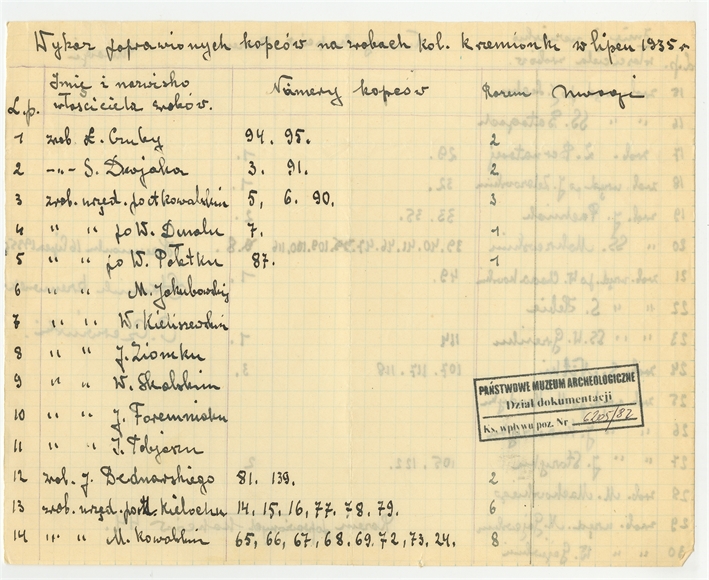 Wykaz poprawionych kopców na zrobach kol. Krzemionki w lipcu 1935 r
L.p. Imię i nazwisko właściciela zrobów. Numery kopców Razem Uwagi
1 zrob. Ł. Czuby 94. 95. 2
2 -"- S. Dwojaka 3. 91. 2
3 zrob. urzęd. po A. Kowalskim 5, 6. 90. 3
4 " " po W. Dmochu 7. 1
5 " " po W. Połetku 87. 1
6 " " M. Jakubowskiej
7 " " W. Kieliszewskim
8 " " J. Ziomku
9 " " W. Skalskim
10 " " J. Foremniaku
11 " " J. Tobjaszu
12 zrob. J. Bednarskiego 81. 139. 2
13 zrob. urzęd. po A. Kielochu 14, 15, 16, 77. 78. 79. 6
14 " " M. Kowalskim 65, 66, 67, 68. 69. 72, 73, 24. 8
PAŃSTWOWE MUZEUM ARCHEOLOGICZNE
Dział dokumentacji
Ks. wpływu poz. Nr 6205/82